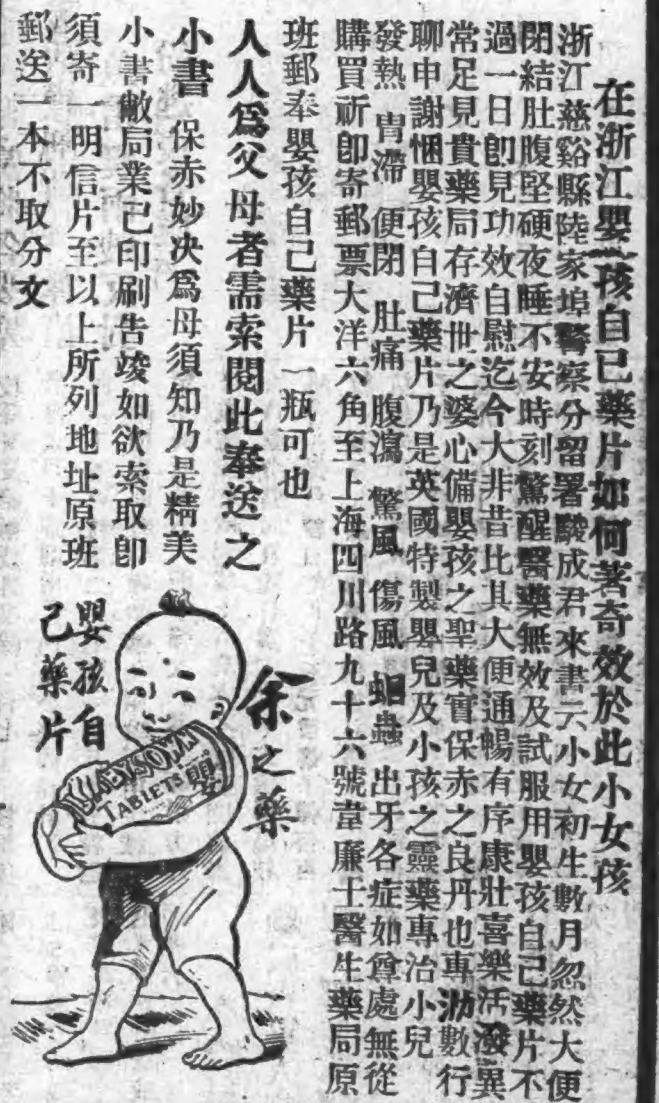 在浙江嬰孩自已藥片如何著奇效於此小女孩
浙江慈谿縣陸家埠警察分留署駿成君來書云小女初生數月忽然大便
閉結肚腹堅硬夜睡不安時刻驚醒醫藥無效及試服用嬰孩自己藥片不
過一日卽見功效自慰迄今大非昔比其大便通暢有序康壯喜樂活潑異
常足見貴藥局存濟世之婆心備嬰孩之聖藥實保赤之良丹也專泐數行
聊申謝悃嬰孩自己藥片乃是英國特製嬰兒及小孩之靈藥專治小兒
發熱 胃滯 便閉 肚痛 腹瀉 驚風 傷風 蛔蟲 出牙各症如尊處無從
購買祈卽寄郵票大洋六角至上海四川路九十六號韋廉士醫生藥局原
班郵奉嬰孩自己藥片一瓶可也
人人爲父母者需索閱此奉送之
小書 保赤妙决爲母須知乃是精美
小書敝局業已印刷告竣如欲索取卽
須寄一明信片至以上所列地址原班
郵送一本不取分文
余之藥
嬰孩自
己藥片
TABLETS
嬰